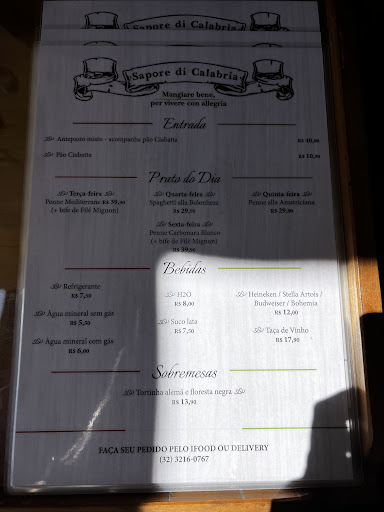 Sapore di Calabria
Sapore di Calabria
Mangiare bene,
per vivere con allegria
Entrada
Antepasto misto - acompanha pão Ciabatta
Pão Ciabatta
R$ 10,90
Prato do Dia
Terça-feira
Penne Mediterrana R$ 39,90
(+ bife de Filé Mignon)
Quarta-feira
Spaghetti alla Bolonhesa
R$ 29,90
Quinta-feira
Penne alla Amatriciana
R$ 29,90
Sexta-feira
Penne Carbonara Bianco
(+ bife de Filé Mignon)
R$ 39,90
Bebidas
Refrigerante
R$ 7,50
Água mineral sem gás
R$ 5,50
Água mineral com gás
R$ 6,00
H2O
R$ 8,00
Suco lata
R$ 7,50
Heineken / Stella Artois /
Budweiser / Bohemia
R$ 12,00
Taça de Vinho
R$ 17,90
Sobremesas
Tortinha alemã e floresta negra
R$ 13,90
FAÇA SEU PEDIDO PELO IFOOD OU DELIVERY
(32) 3216-0767